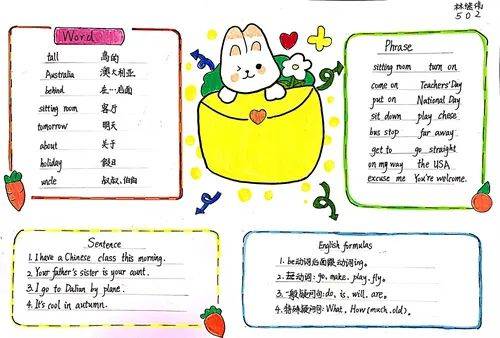 502
Word
Phrase
tall 高的
Australia 澳大利亚
behind 在…后面
sitting room 客厅
tomorrow 明天
about 关于
holiday 假日
uncle 叔叔、伯伯
sitting room turn on
come on Teachers' Day
put on National Day
sit down play chese
bus stop far away
get to go straight
on my way the USA
excuse me You're welcome.
Sentence
1. I have a Chinese class this morning.
2. Your father's sister is your
3. I go to Dalian by plane.
4. It's cool in autumn.
English formulas
1. be动词后面跟动词ing。
2. 动词: go, make, play, fly.
3. 一般疑问句: do, is, will, are.
4. 特殊疑问句: What, How (much, old).